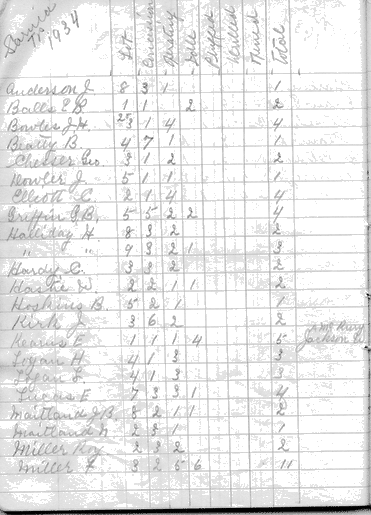 Sarnia
1934
Lot. Concession Working Dole Buffed Drilled Mined Total
Anderson J. 8 3 1 1
Balls E. B. 1 1 2 2
Bowles J. H. 25 3 1 4 4
Beatty B. 4 7 1 1
Chester Geo. 3 1 2 2
Dowler J. 5 1 1 1
Elliott C. 2 1 4 4
Griffin G. B. 5 5 2 2 4
Halliday H. 8 3 2 2
" " 9 3 2 1 3
Hardy C. 3 3 2 2
2 2 1 1 2
Hoskins B. 5 2 1 1
Kirk J. 3 6 2 2
Kearns E. 1 1 1 4 5 Jackson
Logan H. 4 1 3 3
Logan L. 4 1 3 3
Lucas E. 7 3 3 1 4
Maitland J. B. 8 2 1 1 2
Maitland N. 2 2 1 1
Miller Roy 2 3 2 2
Miller F. 3 2 5 6 11